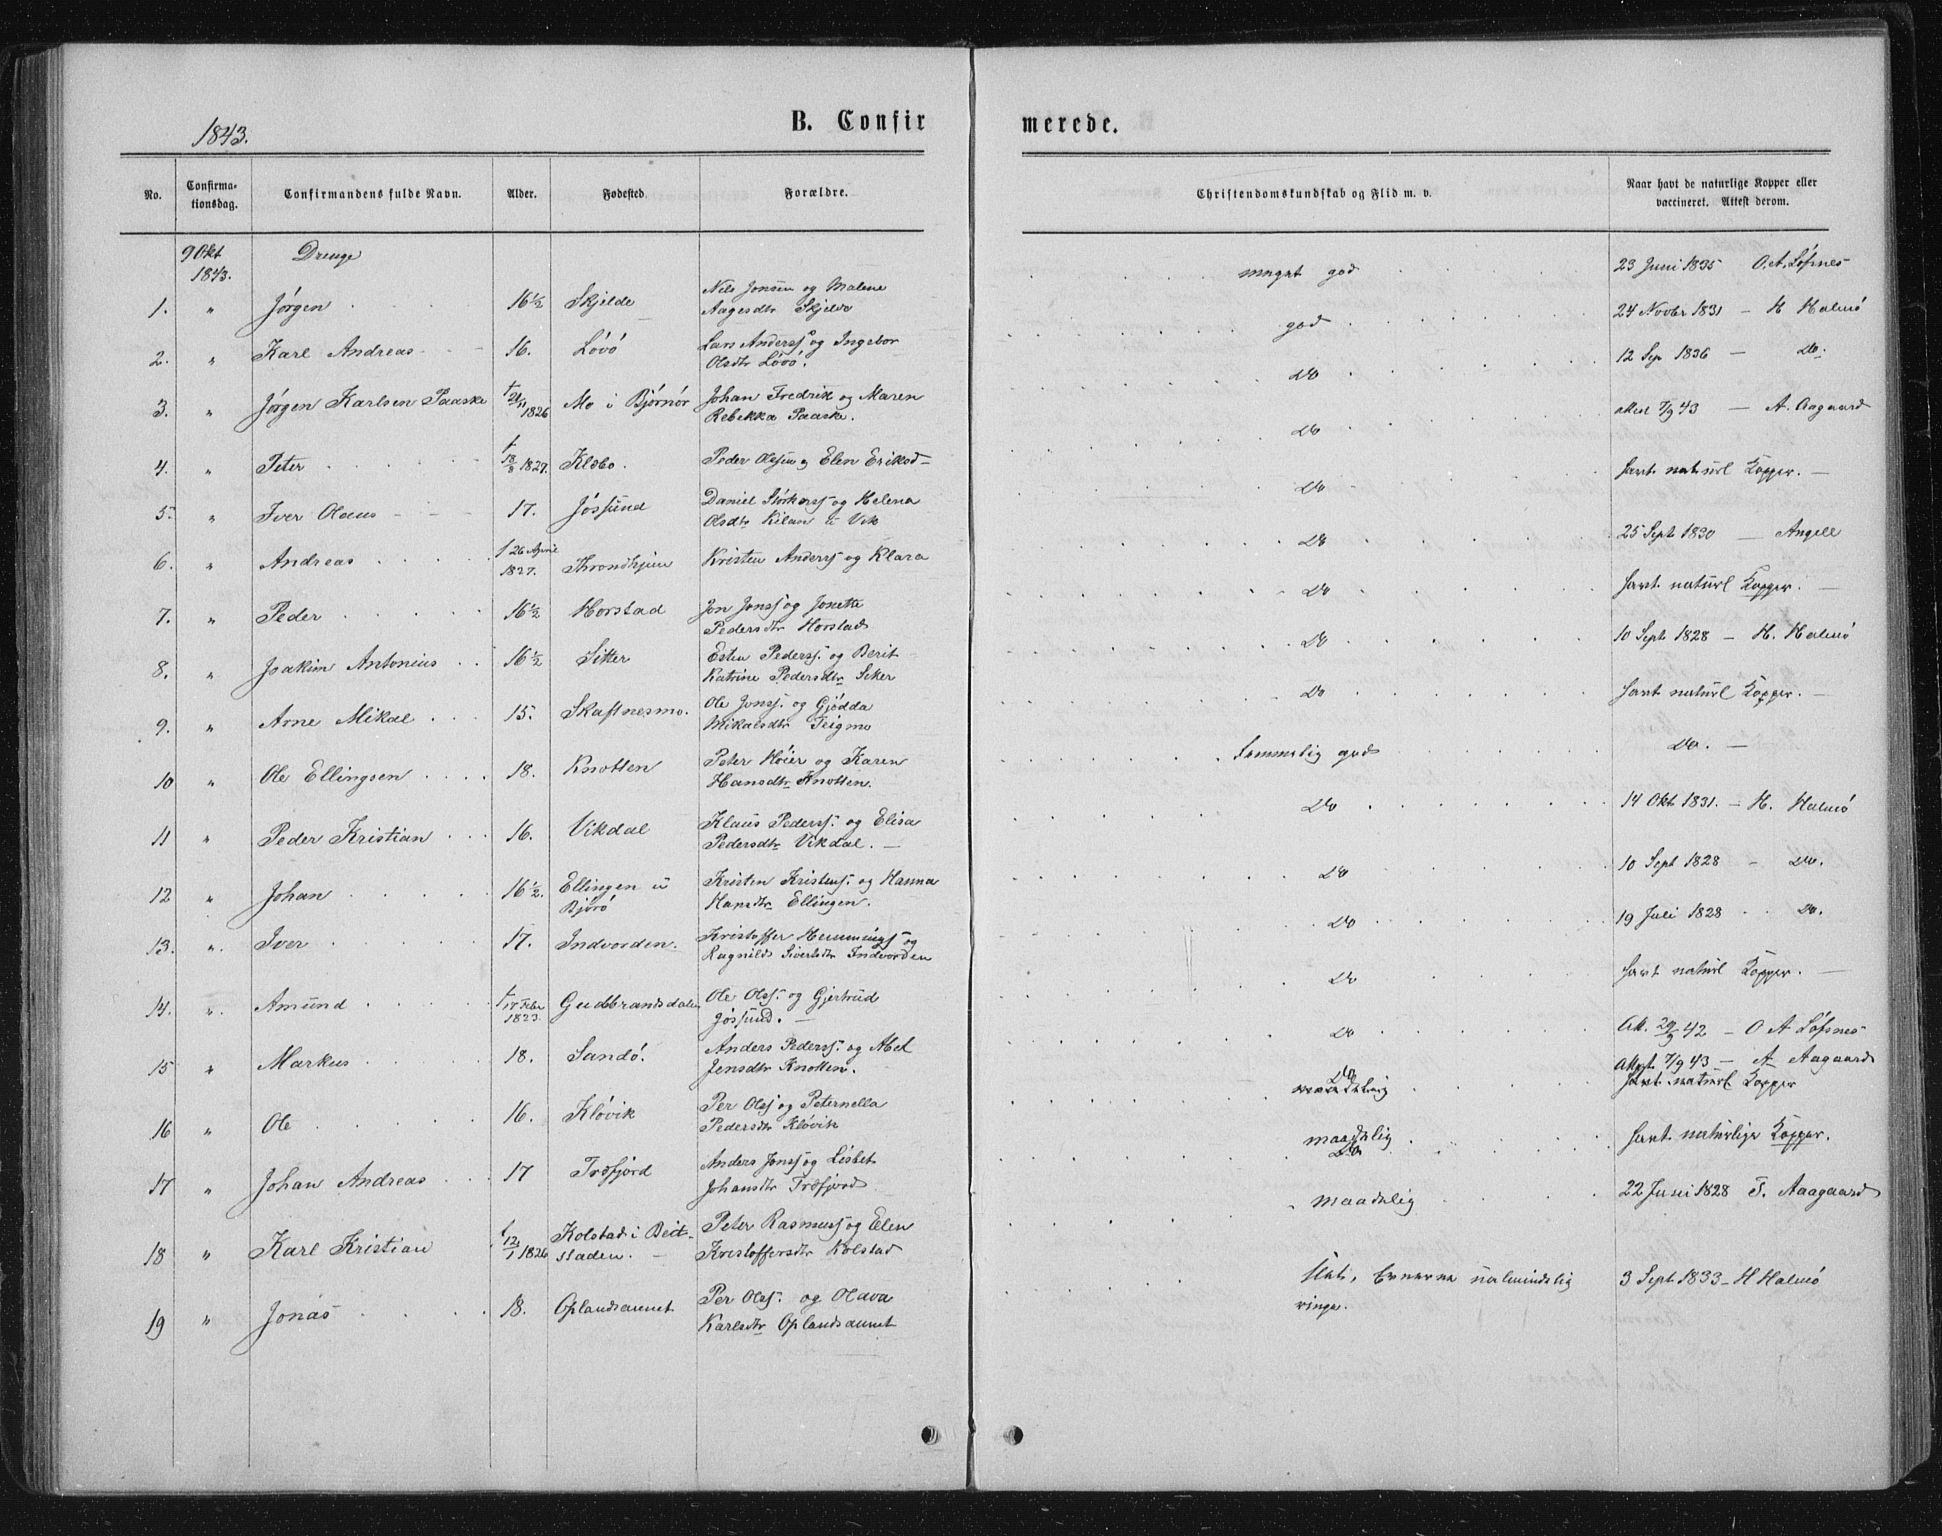 1843.
B. Confirmerede.
No. Confirmationsdag. Confirmandens fulde Navn. Alder. Fødested. Forældre. Christendomskundskab og Flid m. v. Naar havt de naturlige Kopper eller vaccineret. Attest derom.
9 Okt 1843. Drenge
1. " Jørgen 16½ Skjelde Nils Jonsen og Malene Aagesdtr Skjelde meget god 23 Juni 1835 O. A. Løfsnes
2. " Karl Andreas 16. Løvö Lars Anderss og Ingebor Olsdtr Løvö. god 24 Novbr 1831 – H Halmö
3. " Jørgen Karlsen Paaske 1826 Mo i Bjørnør Johan Fredrik og Maren Rebekka Paaske. Do 12 Sep 1836 – Do.
4. " Peter 13/8 1827. Klæbo. Peder Olsen og Elen Eriksd Do 7/9 43 – A. Aagaard
5. " Iver Olaus 17. Jøssund Daniel Størkerss og Helena Olsdtr Kilan u Vik Do Havt naturl Kopper. –
6. " Andreas f 26 April 1827. Throndhjem Kristen Anderss og Klara Do 25 Sept 1830 – Angell
7. " Peder 16½ Horstad Jon Jonss og Jonetta Pedersdtr Horstad Do Havt naturl Kopper. –
8. " Joakim Antonius 16½ Sitter Esten Pederss. og Berit Katrine Pedersdtr Do 10 Sept 1828 – H. Halmö
9. " Arne Mikal 15. Skaftnesmo. Ole Jonss. og Gjødda Mikalsdtr Teigmo Do Havt naturl Kopper. –
10 " Ole Ellingsen 18. Knotten Peter Höier og Karen Hansdtr Knotten. Temmelig god Do. –
11 " Peder Kristian 16. Vikdal Klaus Pederss. og Elisa Pedersdtr Vikdal. – Do 14 Okt 1831. – H. Halmö
12 " Johan 16½. Ellingen u Bjørö Kristen Kristens. og Hanna Hansdtr Ellingen. Do 10 Sept 1828 – Do.
13. " Iver 17. Indvorden. Kristoffer Hemmings og Ragnild Sivertsdtr Indvorden Do 19 Juli 1828 Do.
14. " Amund f 17 Febr 1823. Gudbrandsdalen Ole Olss. og Gjertrud Jøssund. – Do Havt naturl Kopper. –
15 " Markus 18. Sandö. Anders Pederss. og Abel Jensdtr Knotten. Do 42 – O A Løfsnes
16 " Ole 16. Kløvik Per Olss og Peternella Pedersdtr Kløvik Do 7/9 43 – A. Aagaard Havt naturl Kopper
17 " Johan Andreas 17 Træfjord Anders Jonss og Lisbet Johansdtr Træfjord maadelig Do Havt naturlige Kopper.
18 " Karl Kristian 12/1 1826 Kolstad i Beitstaden. – Peter Rasmuss og Elen Kristoffersdtr Kolstad maadelig 22 Juni 1828 Aagaard
19 " Jonas 18. Oplandsaunet Per Olss. og Olava Karlsdtr Oplandsaunet Slet, Evnerne ualmindelig ringe. 3 Sept 1833 – H Halmö